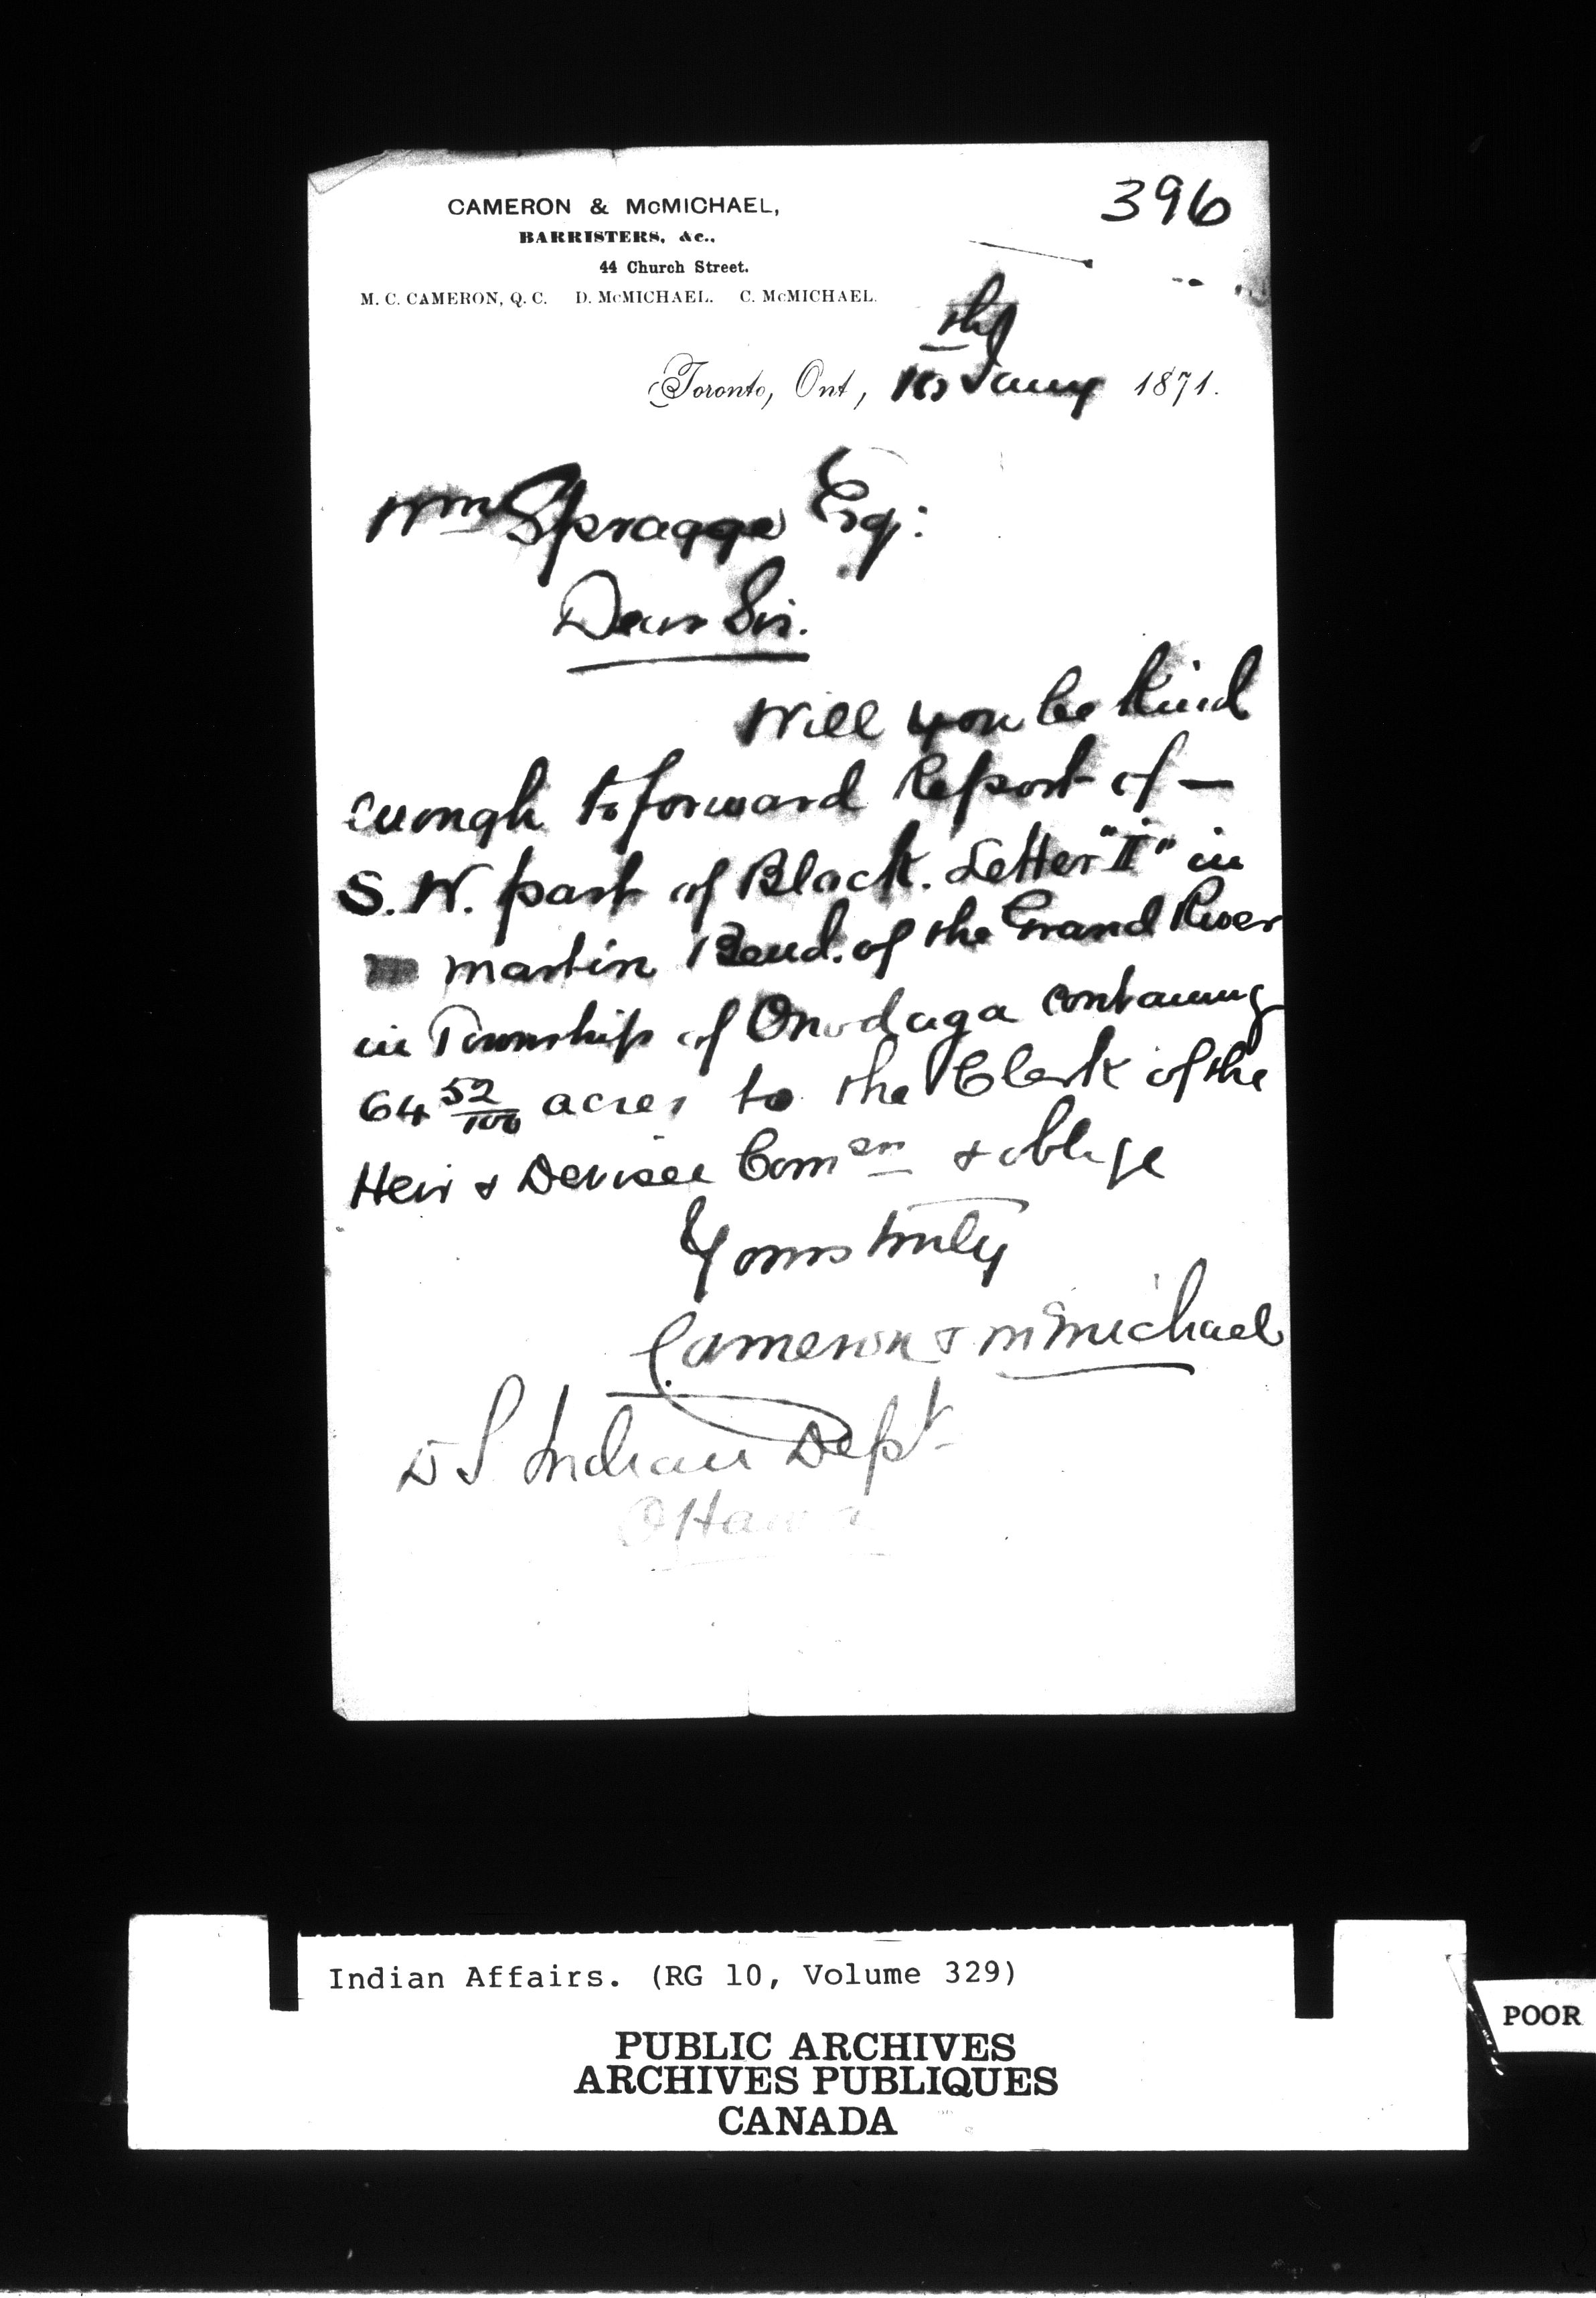 396
CAMERON & McMICHAEL,
BARRISTERS, &c.,
44 Church Street.
M. C. CAMERON, Q. C. D. McMICHAEL. C. McMICHAEL.
th
Toronto, Ont, Jany 1871.
Wm Spragge Esq:
Dear Sir.
Will you be kind
enough to forward Report of —
S. W. part of Block. Letter "I" in
Martin Bend. of the Grand River
in Township of Onodaga containing
64 52/100 acres to the Clerk of the
Heir & Devisee Comsn & oblige
Yours truly
Cameron & McMichael
D S Indian Dept
Ottawa
Indian Affairs. (RG 10, Volume 329)
PUBLIC ARCHIVES
ARCHIVES PUBLIQUES
CANADA
POOR